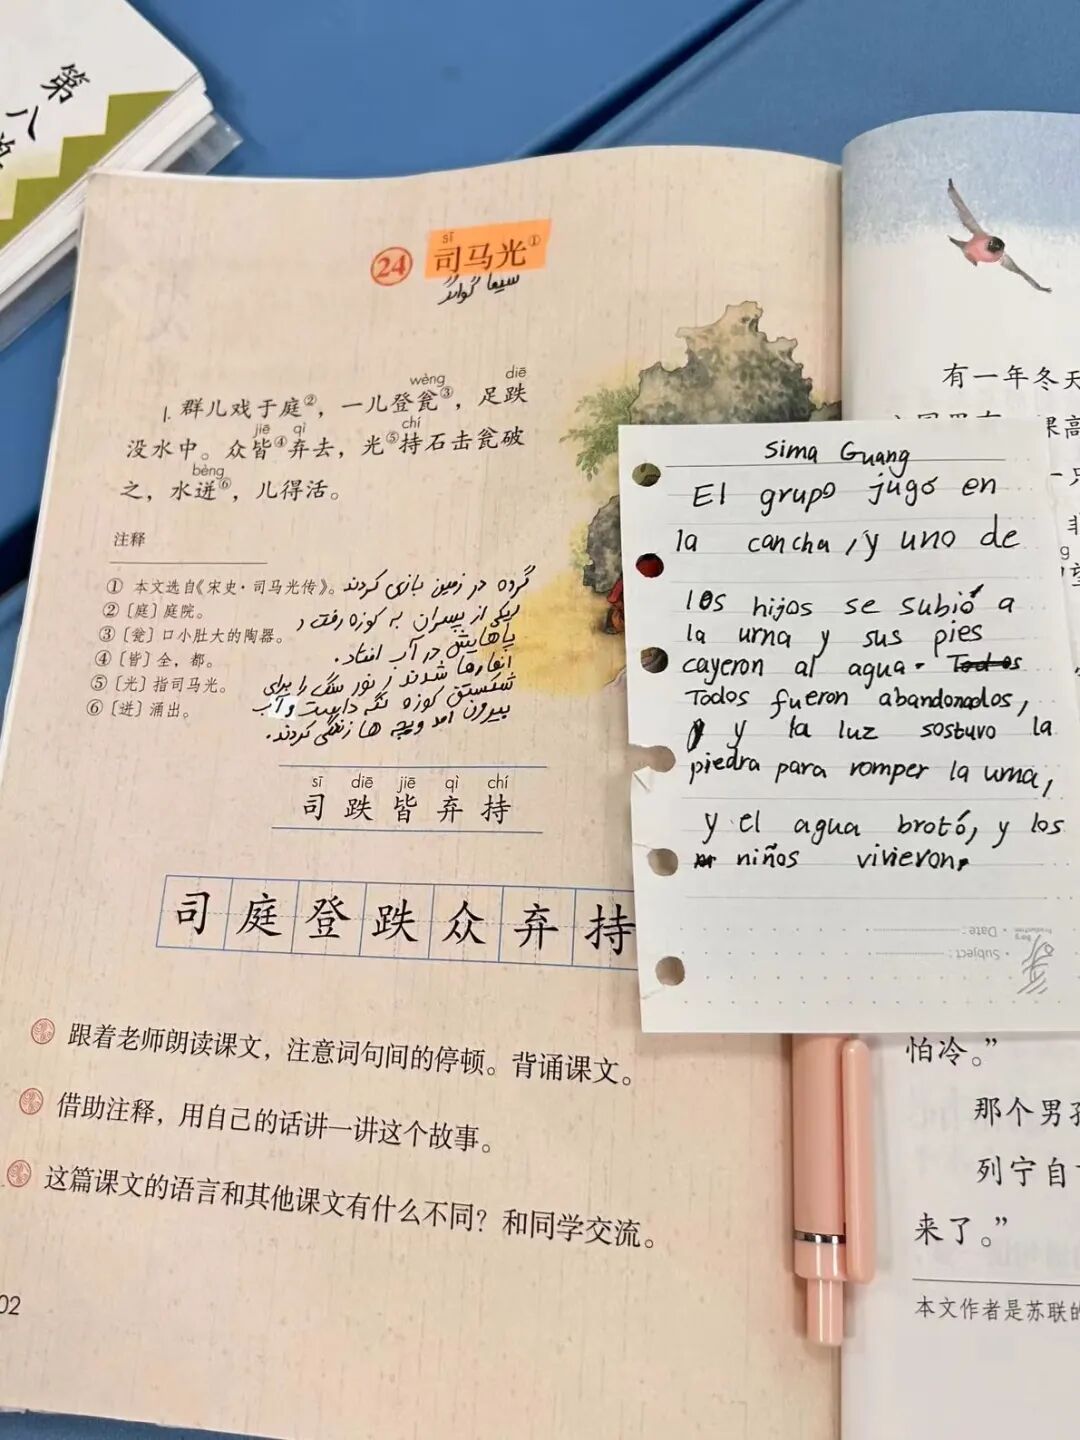 第八单
sī
24 司马光①
سیما گوانگ
wèng diē
1. 群儿戏于庭②，一儿登瓮③，足跌
jiē qì chí
没水中。众皆④弃去，光⑤持石击瓮破
bèng
之，水迸⑥，儿得活。
注释
① 本文选自《宋史·司马光传》。
② 〔庭〕庭院。
③ 〔瓮〕口小肚大的陶器。
④ 〔皆〕全，都。
⑤ 〔光〕指司马光。
⑥ 〔迸〕涌出。
گروه در زمین بازی کردند
یکی از پسران به کوزه رفت و
پاهایش در آب افتاد.
شدند نور سنگ را برای
شکستن کوزه نگه داشت و آب
بیرون آمد و بچه ها زندگی کردند.
sī diē jiē qì chí
司 跌 皆 弃 持
司 庭 登 跌 众 弃 持
跟着老师朗读课文，注意词句间的停顿。背诵课文。
借助注释，用自己的话讲一讲这个故事。
这篇课文的语言和其他课文有什么不同？和同学交流。
02
Sima Guang
El grupo jugó en
la cancha, y uno de
los hijos se subió a
la urna y sus pies
cayeron al agua. Todos
Todos fueron abandonados,
y y la luz sostuvo la
piedra para romper la urna,
y el agua brotó, y los
niños vivieron.
Date:
Subject:
有一年冬天
棵高
一只
望
怕冷。”
那个男孩
列宁自
来了。”
本文作者是苏联的